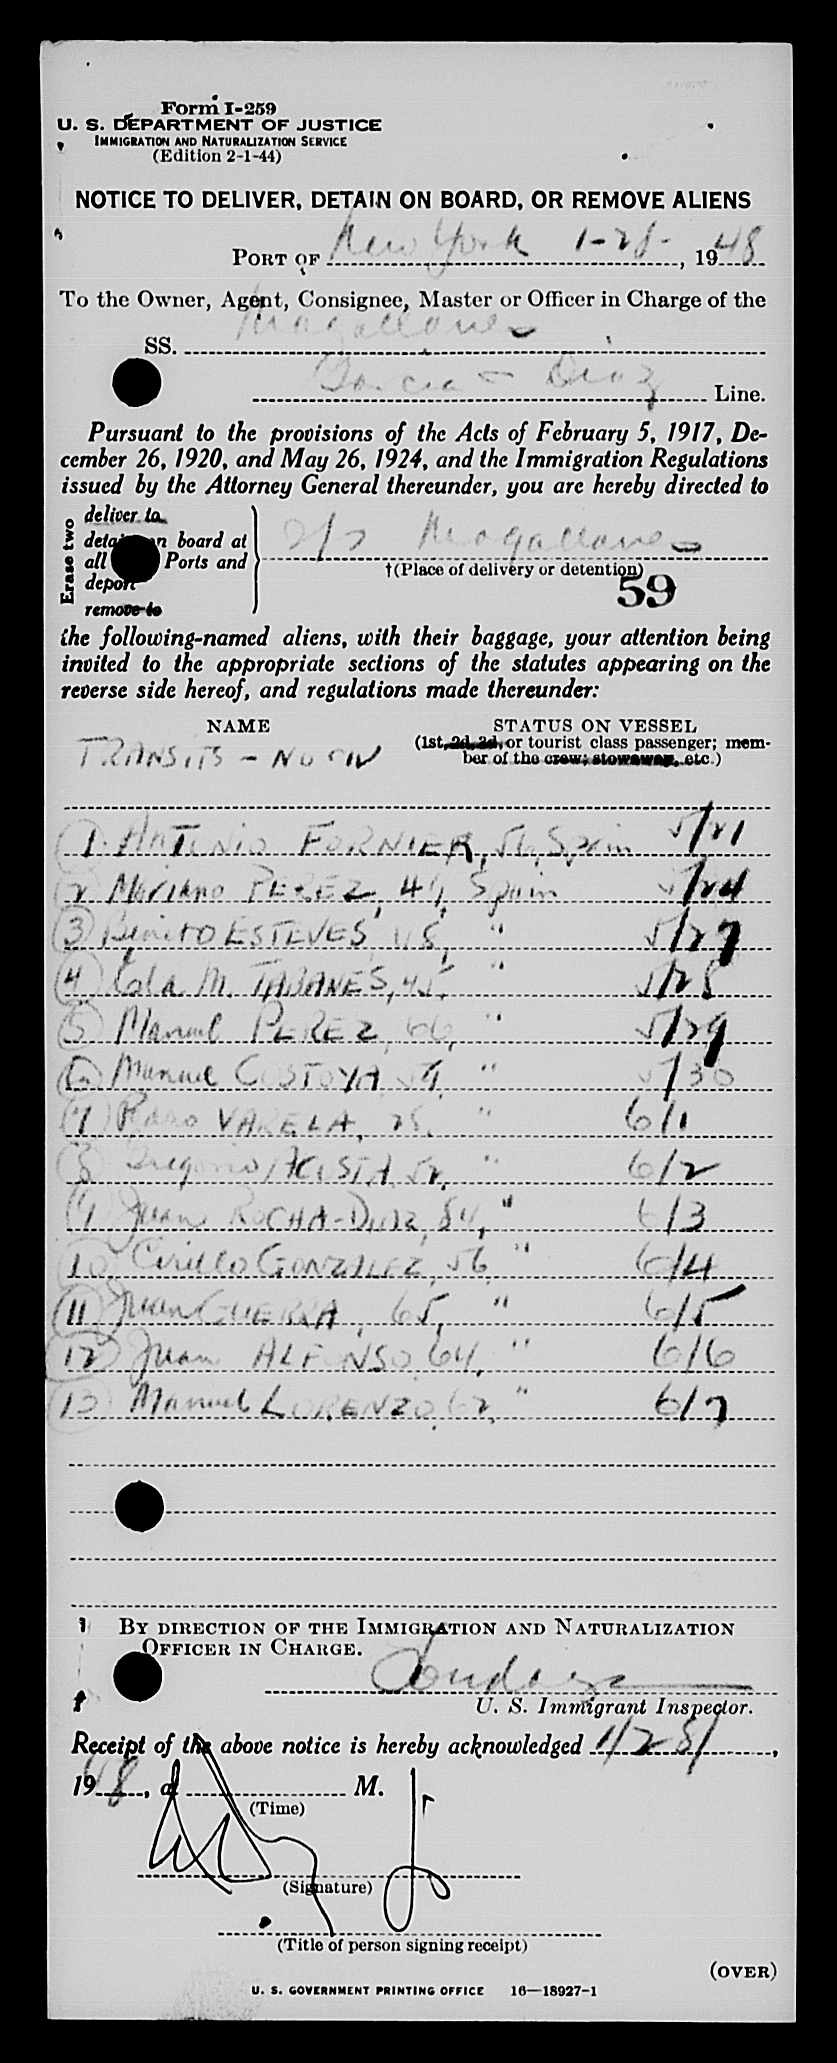 Form I-259
U. S. DEPARTMENT OF JUSTICE
IMMIGRATION AND NATURALIZATION SERVICE
(Edition 2-1-44)
NOTICE TO DELIVER, DETAIN ON BOARD, OR REMOVE ALIENS
PORT OF New York 1-28-, 1948
To the Owner, Agent, Consignee, Master or Officer in Charge of the
SS. Magallanes
Garcia & Diaz Line.
Pursuant to the provisions of the Acts of February 5, 1917, De-
cember 26, 1920, and May 26, 1924, and the Immigration Regulations
issued by the Attorney General thereunder, you are hereby directed to
Erase two
deliver to
detain on board at
all Ports and
deport
remove to
s/s Magallanes
†(Place of delivery or detention)
59
the following-named aliens, with their baggage, your attention being
invited to the appropriate sections of the statutes appearing on the
reverse side hereof, and regulations made thereunder:
NAME STATUS ON VESSEL
(1st, 2d, 3d, or tourist class passenger; mem-
ber of the crew; stowaway, etc.)
TRANSITS - No
1. ANTONIO FORNIER, 56, Spain 5/21
2 Mariano PEREZ, 49, Spain 5/24
3 Benito ESTEVES, 45, " 5/27
4 M. TABANES, 45, " 5/28
5 Manuel PEREZ, 66, " 5/29
6 Manuel COSTOYA, 59, " 5/30
7 VARELA, 25, " 6/1
8 Gregorio ACOSTA, 52, " 6/2
9 Juan ROCHA-DIAZ, 54, " 6/3
10 Cirilo GONZALEZ, 56, " 6/4
11 Juan GUERRA, 65, " 6/5
12 Juan ALFONSO, 64, " 6/6
13 Manuel LORENZO, 62, " 6/7
BY DIRECTION OF THE IMMIGRATION AND NATURALIZATION
OFFICER IN CHARGE.
U. S. Immigrant Inspector.
Receipt of the above notice is hereby acknowledged 1/28/,
1948, at M.
(Time)
(Signature)
(Title of person signing receipt)
(OVER)
U. S. GOVERNMENT PRINTING OFFICE 16—18927-1